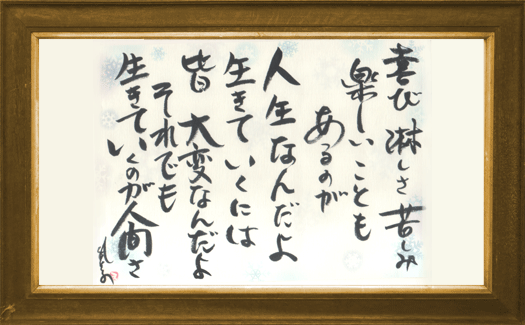 喜び 淋しさ 苦しみ
楽しいことも
あるのが
人生なんだよ
生きていくには
皆 大変なんだよ
それでも
生きていくのが人間さ